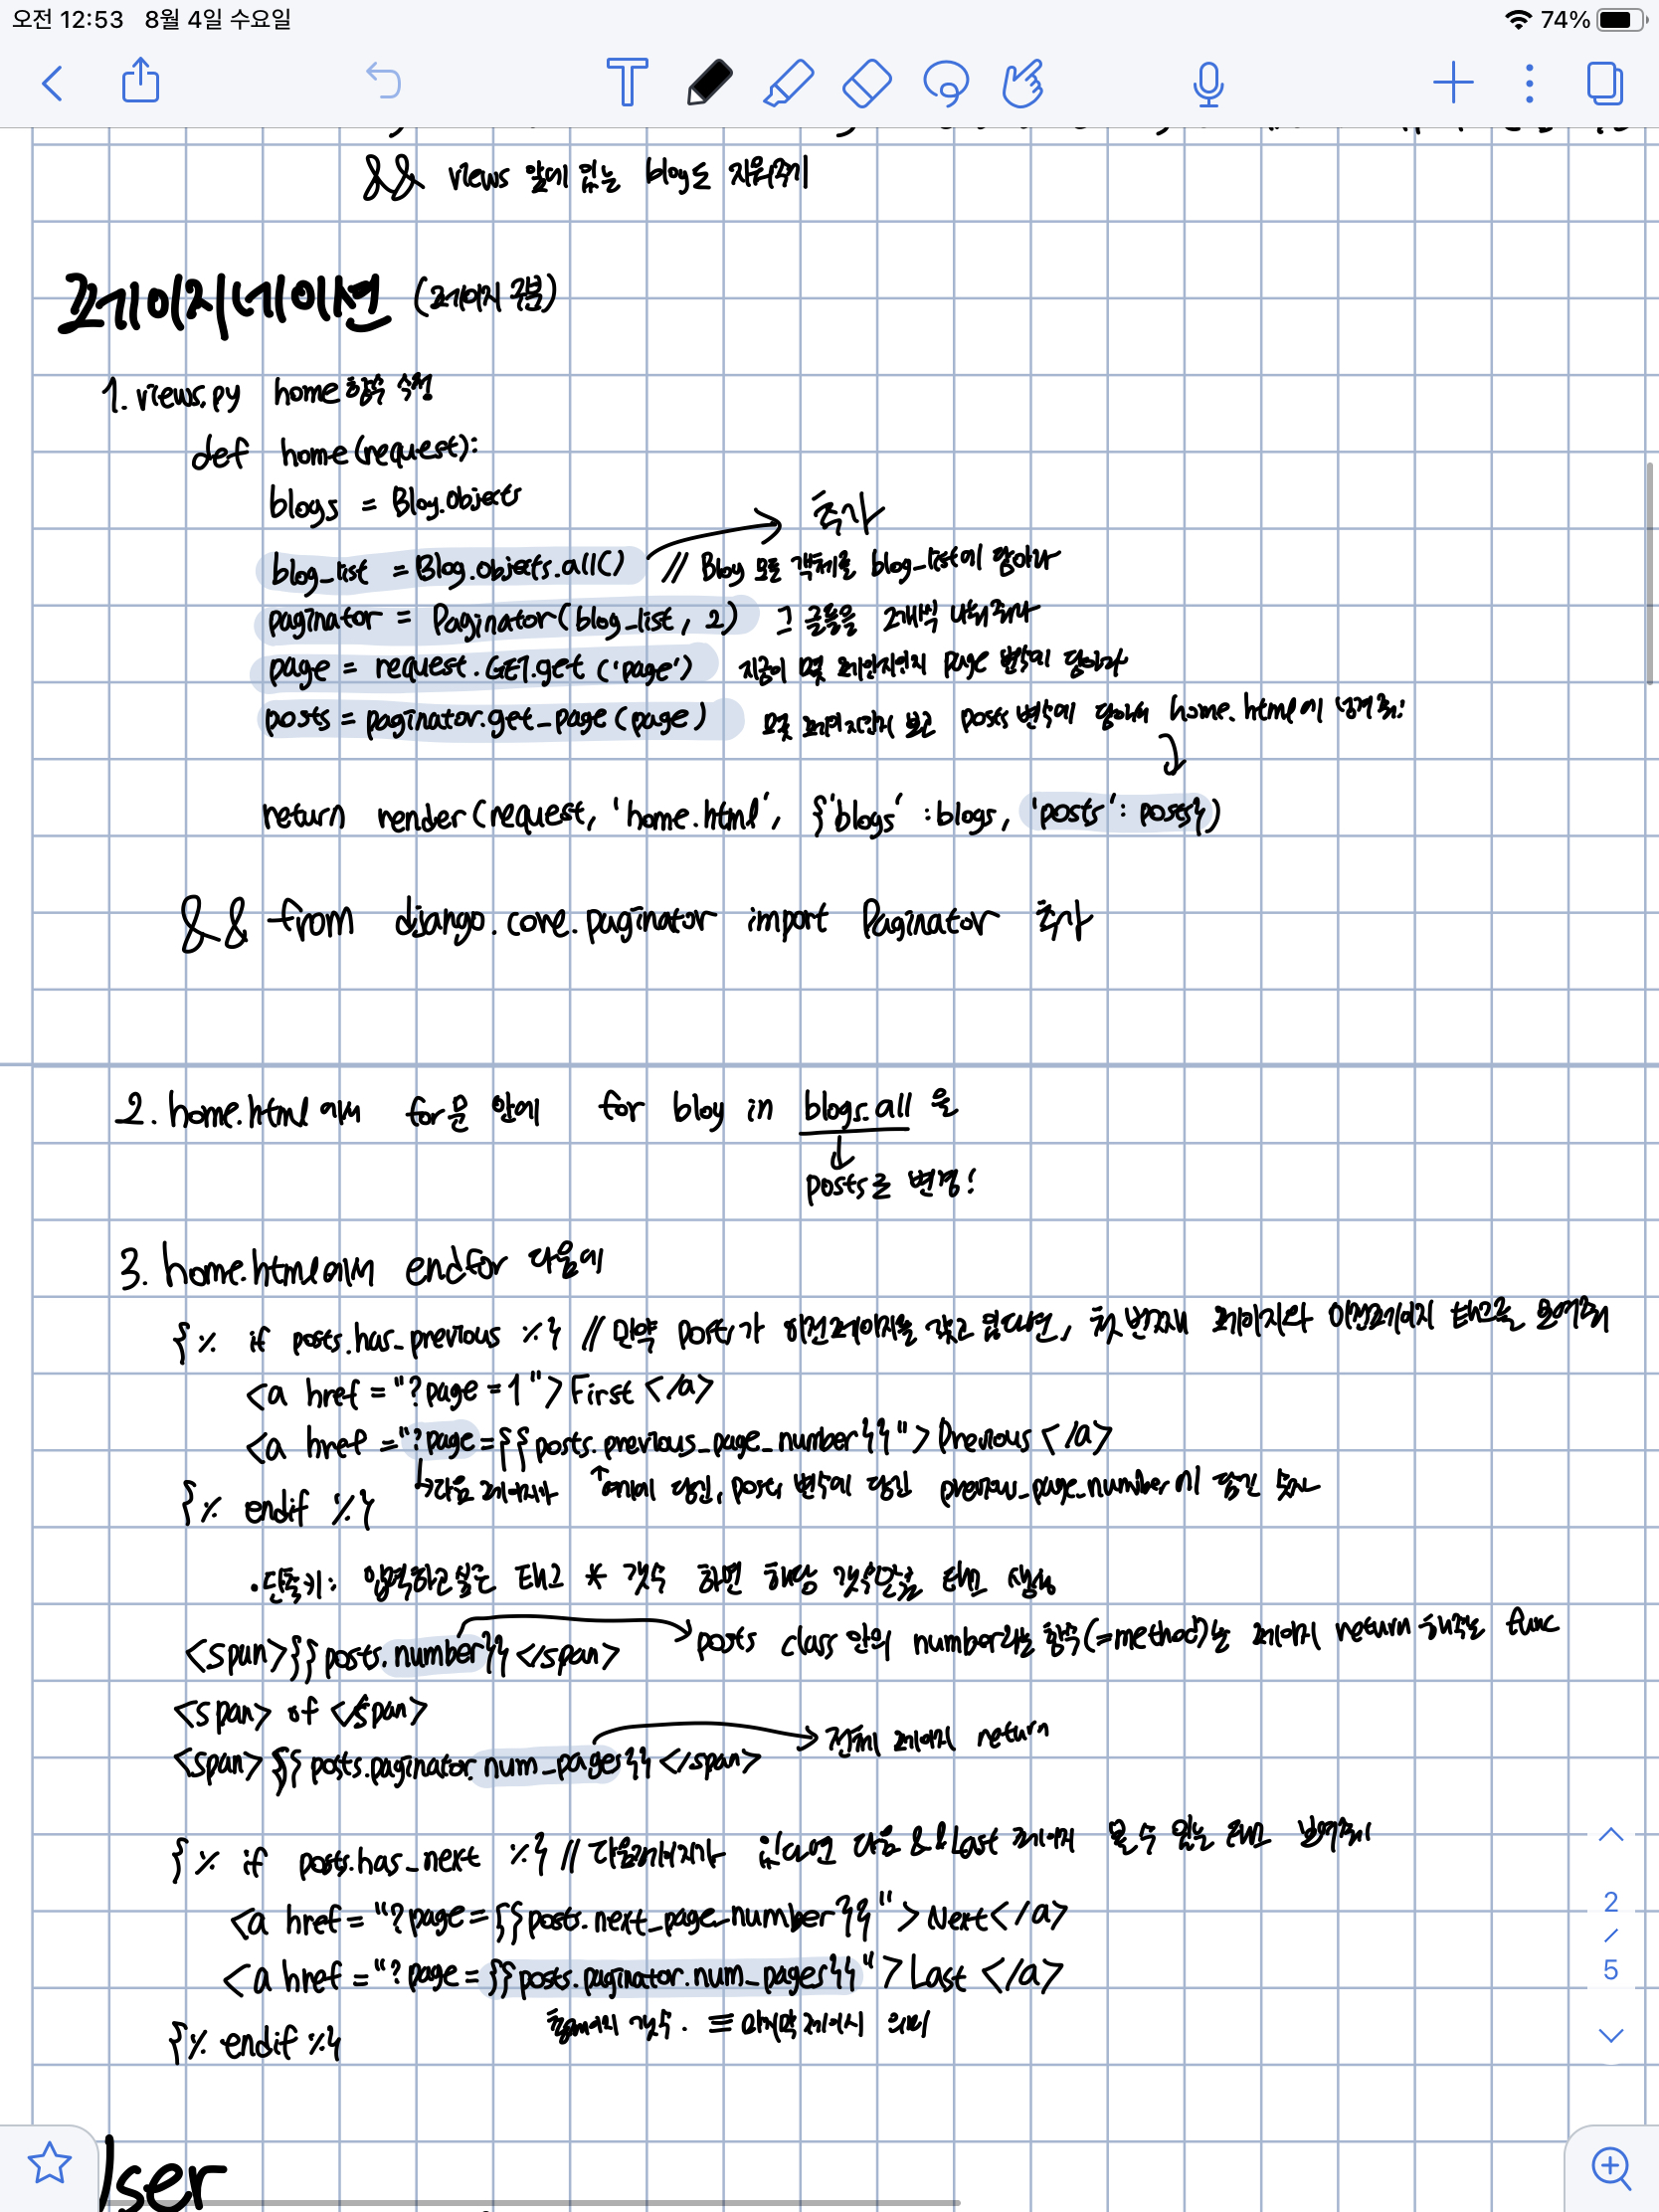 오전 12:53 8월 4일 수요일
74%
&& views 앞에 있는 blog도 지워주기
페이지네이션 (페이지 구분)
1. views.py home 함수 수정
def home(request):
blogs = Blog.objects
추가
blog_list = Blog.objects.all() // Blog 모든 객체를 blog_list에 담아라
paginator = Paginator(blog_list, 2) 그 글들을 2개씩 나눠줘라
page = request.GET.get('page') 지금이 몇 페이지인지 page 변수에 담아라
posts = paginator.get_page(page) 몇 페이지인지 보고 posts 변수에 담아서 home.html에 넘겨줘!
return render(request, 'home.html', {'blogs' : blogs, 'posts' : posts})
&& from django.core.paginator import Paginator 추가
2. home.html에서 for문 안에 for blog in blogs.all 을
posts로 변경!
3. home.html에서 endfor 다음에
{% if posts.has_previous %} // 만약 posts가 이전페이지를 갖고 있다면, 첫번째 페이지와 이전페이지 태그를 보여줘
<a href="?page=1">First</a>
<a href="?page={{posts.previous_page_number}}">Previous</a>
다음 페이지가 여기에 담긴, posts 변수에 담긴 previous_page_number에 담긴 숫자
{% endif %}
·단축키: 입력하고싶은 태그 * 갯수 하면 해당 갯수만큼 태그 생성
<span>{{posts.number}}</span> posts class 안의 number라는 함수(=method)는 페이지 return 해주는 func
<span> of </span>
<span>{{posts.paginator.num_pages}}</span> 전체 페이지 return
{% if posts.has_next %} // 다음페이지가 있다면 다음 && Last 페이지 볼 수 있는 태그 보여주기
<a href="?page={{posts.next_page_number}}">Next</a>
<a href="?page={{posts.paginator.num_pages}}">Last</a>
갯수. = 마지막 페이지 의미
{% endif %}
2
/
5
User